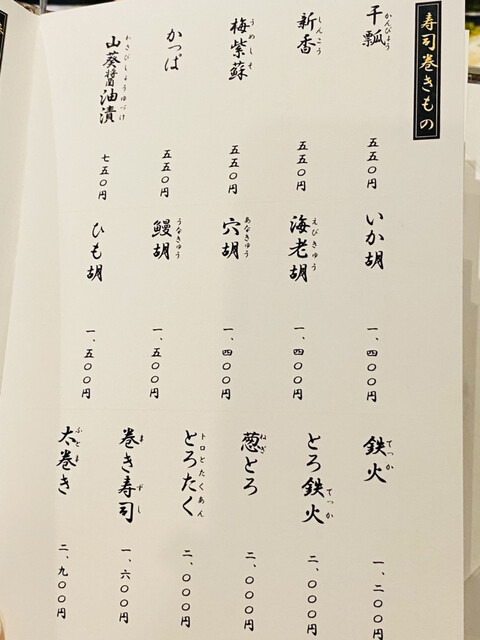 寿司巻きもの
干瓢
かんぴょう
五五〇円
新香
しんこう
五五〇円
梅紫蘇
うめしそ
五五〇円
かっぱ
五五〇円
山葵醤油漬
わさびしょうゆづけ
七五〇円
いか胡
一、四〇〇円
海老胡
えびきゅう
一、四〇〇円
穴胡
あなきゅう
一、四〇〇円
鰻胡
うなきゅう
一、五〇〇円
ひも胡
一、五〇〇円
鉄火
てっか
一、二〇〇円
とろ鉄火
てっか
二、〇〇〇円
葱とろ
ねぎ
二、〇〇〇円
とろたく
トロとたくあん
二、〇〇〇円
巻き寿司
まずし
一、六〇〇円
太巻き
ふとま
二、九〇〇円